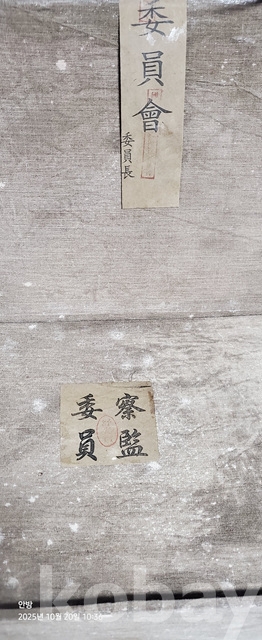 委員會
委員長
察監
委員
안방
2025년 10월 20일
kobay